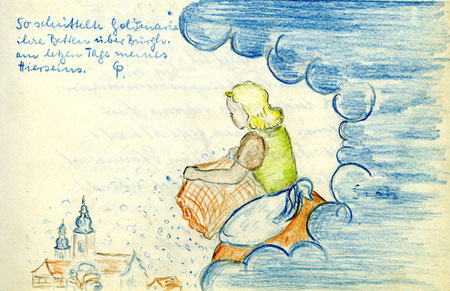 So schüttelte Goldmarie
ihre Betten über Burgh.
am letzen Tage meines
Hierseins.